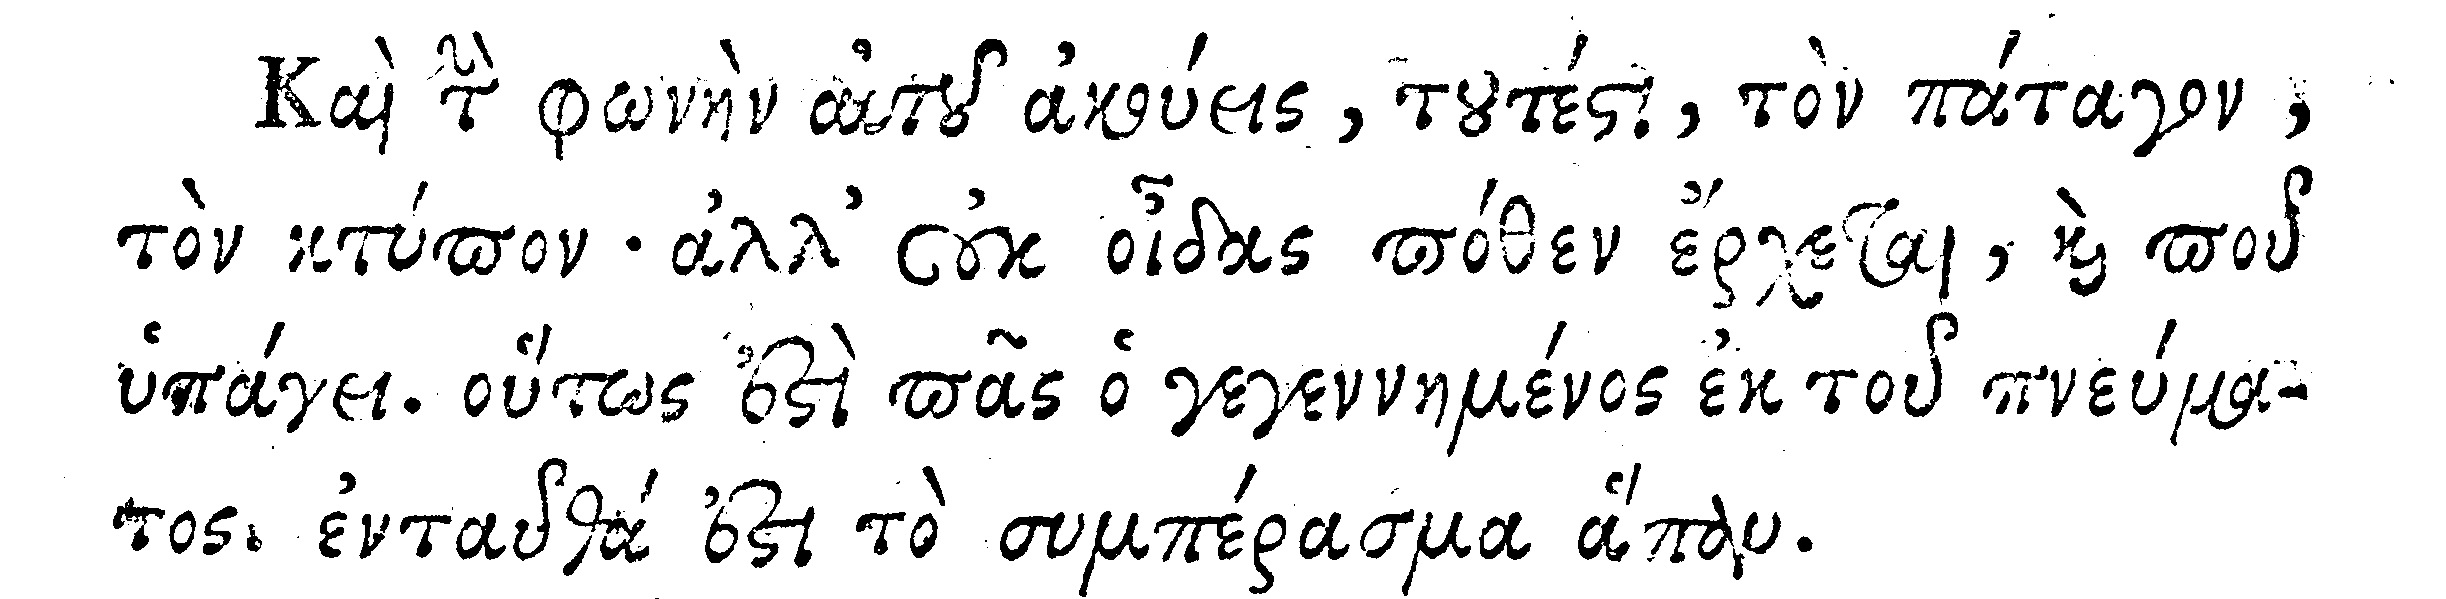 Καὶ τὴν φωνὴν αὐτοῦ ἀκούεις, τουτέστι, τὸν πάταγον,
τὸν κτύπον· ἀλλ’ οὐκ οἶδας πόθεν ἔρχεται, καὶ ποῦ
ὑπάγει. οὕτως ἐστὶ πᾶς ὁ γεγεννημένος ἐκ τοῦ πνεύμα-
τος. ἐνταῦθά ἐστι τὸ συμπέρασμα ἅπαν.